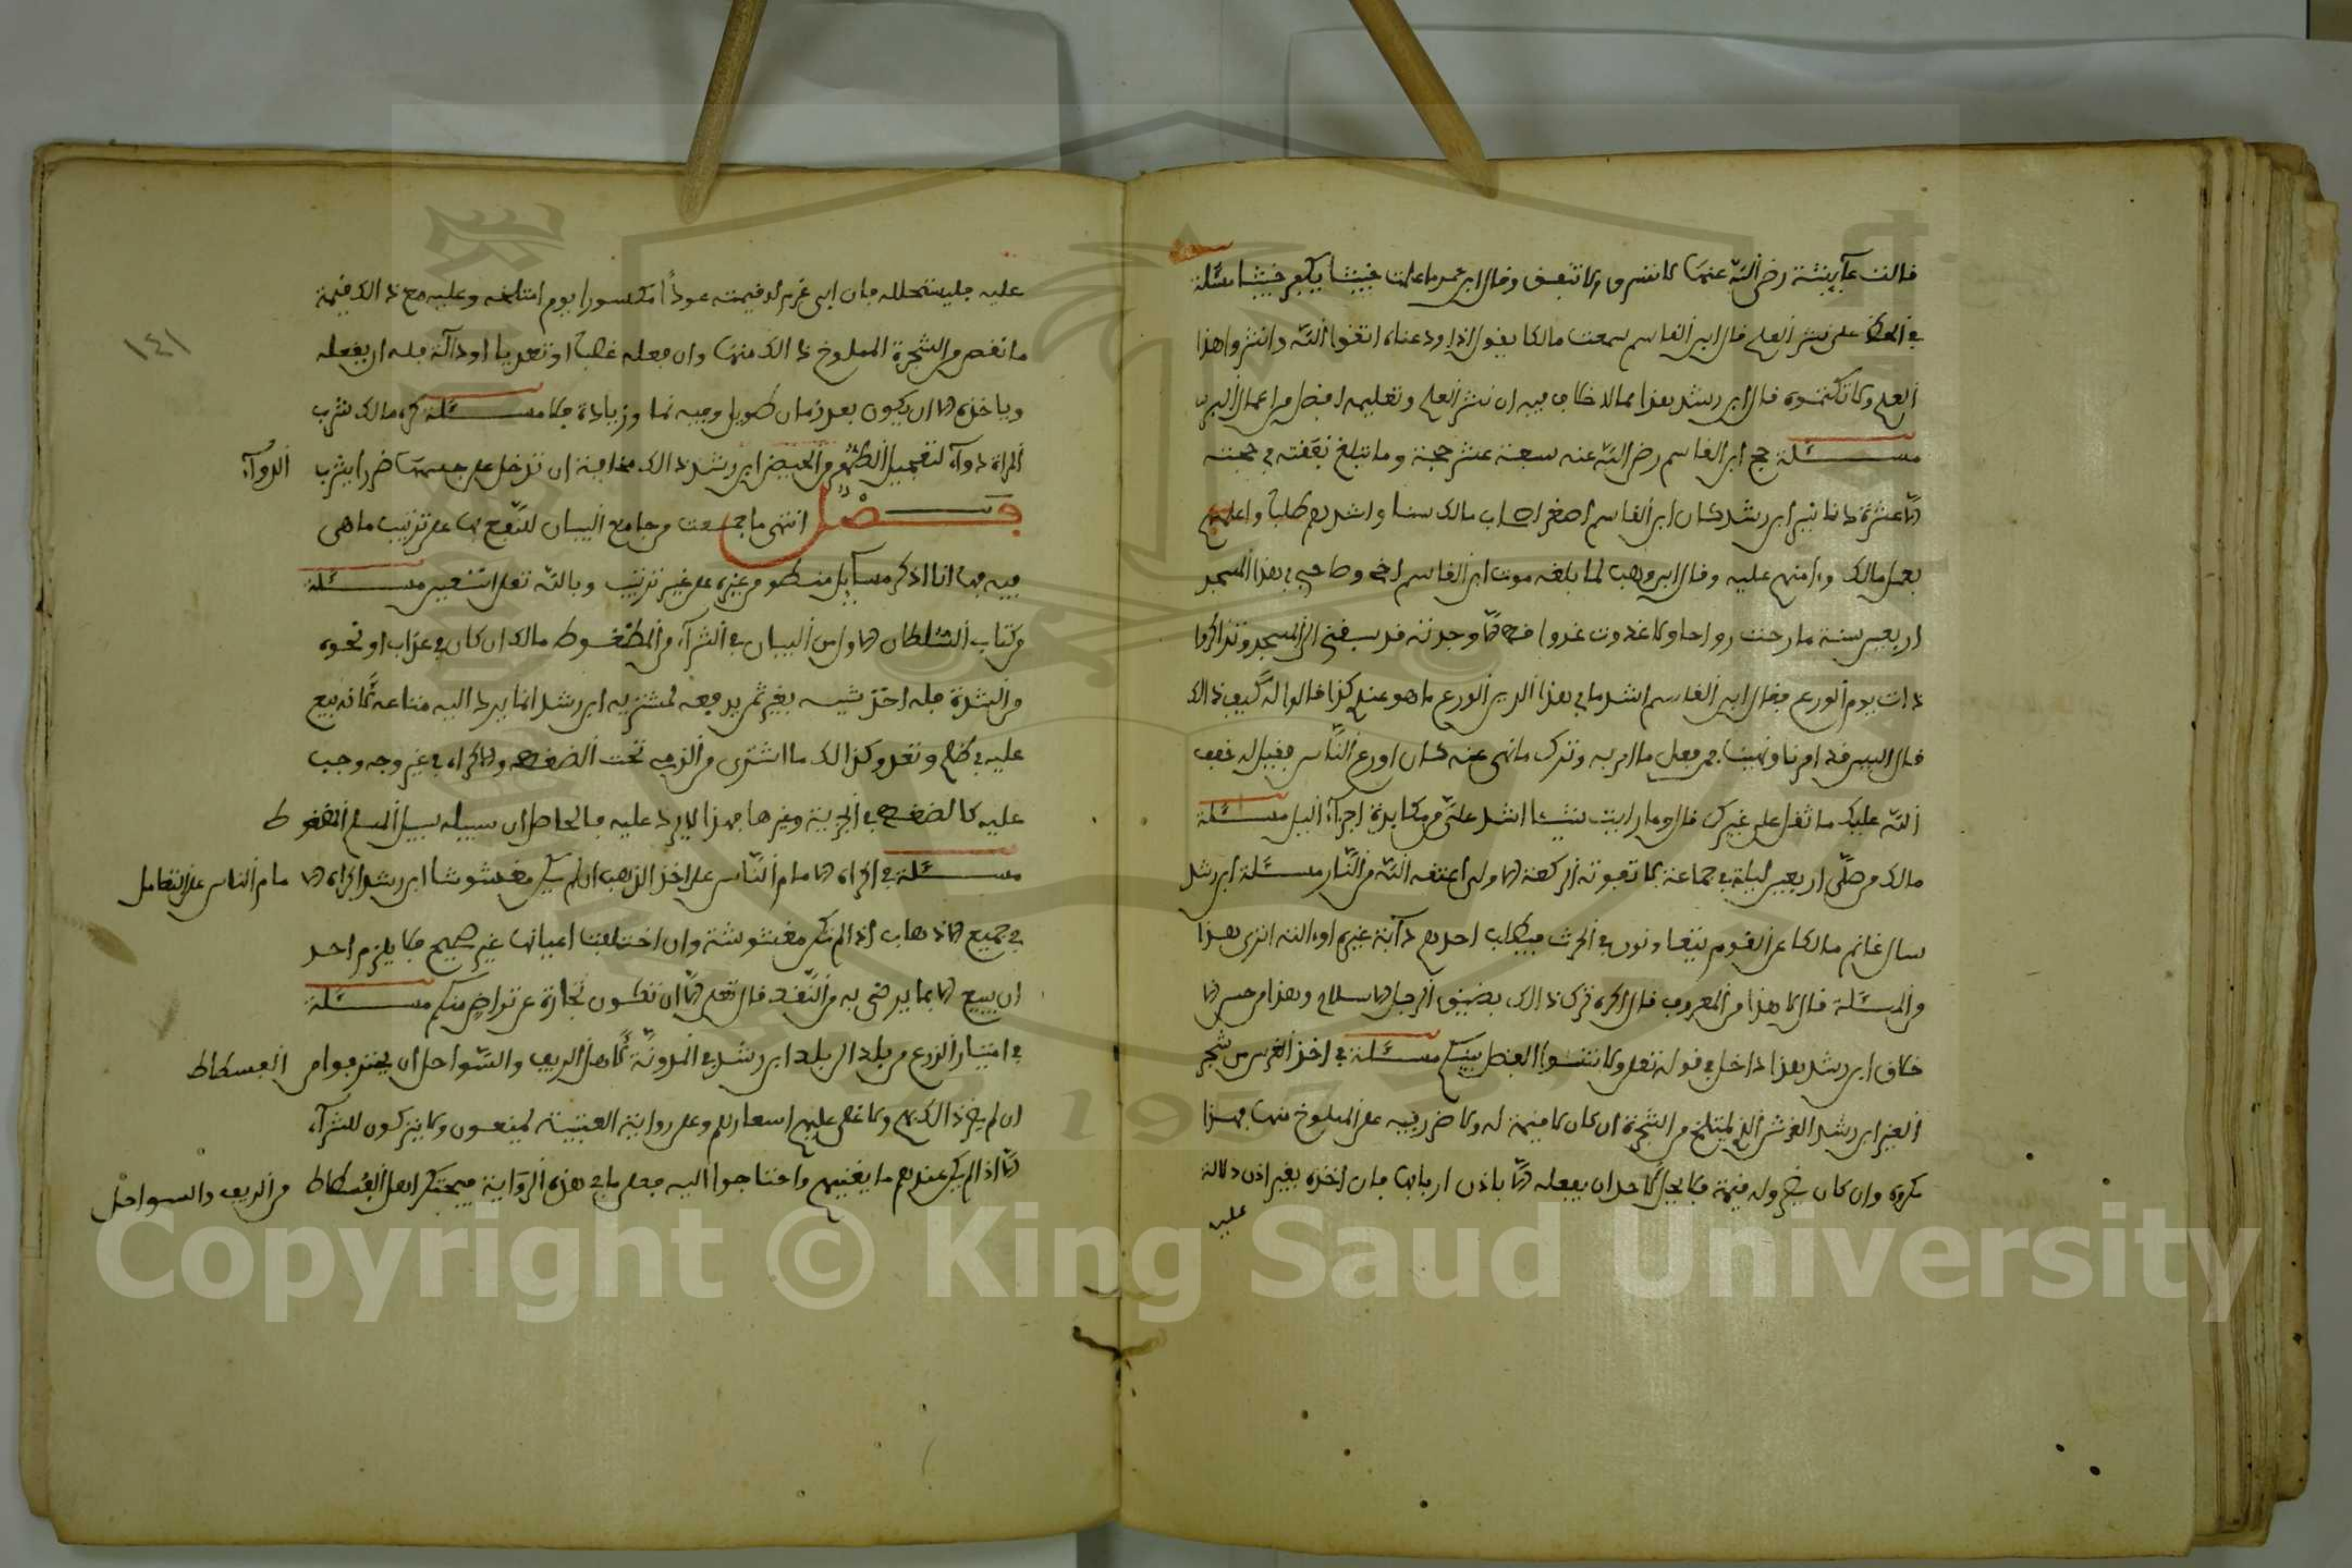 قالت عآيشة رضي الله عنها لا تسرق ولا تعق وقال ابن عمر ما علمت خبيثا يكفر خبيثا مسئلة
في الحظ على نشر العلم قال ابن القاسم سمعت مالكا يقول اذا ودعناه اتقوا الله وانشروا هذا
العلم ولا تكتموه قال ابن رشد هذا مما لا خلاف فيه ان نشر العلم وتعليمه افضل من اعمال البر
مسئلة حج ابن القاسم رضي الله عنه سبعة عشر حجة وما تبلغ نفقته في حجته
الا عشرة دنانير ابن رشد كان ابن القاسم اصغر اصحاب مالك سنا واشدهم طلبا واعلمهم
بعلم مالك وءامنهم عليه وقال ابن وهب لما بلغه موت ابن القاسم اخي وصاحبي في هذا المسجد
اربعين سنة ما رحت رواحا ولا غدوت غدوا قط الا وجدته قد سبقني الى المسجد وتذاكروا
ذات يوم الورع فقال ابن القاسم اشد ما في هذا الدين الورع ما هو عندي كذا قالوا له كيف ذالك
قال اليس قد امرنا ونهينا فمن فعل ما امر به وترك ما نهي عنه كان اورع الناس فقيل له خفف
الله عليك ما ثقل على غيرك قال وما رايت شيئا اشد علي من مكابدة اجزآء اليل مسئلة
مالك من صلى اربعين ليلة في جماعة لا تفوته الركعة الاولى اعتقه الله من النار مسئلة ابن رشد
سال غانم مالكا عن القوم يتعاونون في الحرث فيطلب احدهم دآبة غيره اوءالته اترى هذا
من المسئلة قال لا هذا من المعروف قال اكره ترك ذالك بضيق الرجل الاسلام وهذا من حسن الا
خلاق ابن رشد هذا داخل في قوله تعلى ولا تنسوا الفضل بينكم مسئلة في اخذ الغرس من شجر
الغير ابن رشد الغرس الذي يمتلخ من الشجرة ان كان لا قيمة له ولا ضرر فيه على المملوخ منها فهذا
مكروه وان كان يضر وله قيمة فلا يحل لاحد ان يفعله الا باذن اربابها فان اخذه بغير اذن دلالة
عليه
١٤١
عليه فليستحلله فان ابى غرم له قيمته عودًا مكسورا يوم امتلخه وعليه مع ذالك قيمة
ما نقص من الشجرة المملوخ ذالك منها وان فعله غصبا او تعديا او دآلة فله ان يفعله
وياخذه الا ان يكون بعد زمان طويل وفيه نما وزيادة فلا مسئلة كره مالك شرب
المراة دوآء لتعجيل الطهر من الحيض ابن رشد ذالك مخافية ان تدخل على جسمها ضررا بشرب الدوآء
فصل انتهى ما جمعت من جامع البيان للنفع بها على ترتيب ما هي
فيه فها انا اذكر مسآيل من غيره على غير ترتيب وبالله تعلى استعين مسئلة
من كتاب السلطان الاول من البيان في الشرآء من المضغوط مالك ان كان في عذاب او نحوه
من الشدة فله اخذ شيئه بغير ثمن يدفعه لمشتريه ابن رشد انما يرد اليه متاعه لانه بيع
عليه في ظلم وتعد وكذالك ما اشترى من الذمي تحت الضغط والاكراه في غير وجه وجب
عليه كالضغط في الجزية وغيرها فهذا لا يرد عليه فالحاصل ان سبيله سبيل المسلم المضغوط
مسئلة في اكراه الامام الناس على اخذ الذهب ان لم يكن مغشوشا ابن رشد اكراه الامام الناس على التعامل
في جميع الاذهاب اذا لم تكن مغشوشة وان اختلفت اعيانها غير صحيح فلا يلزم احد
ان يبيع الا بما يرضى به من النقد قال تعلى الا ان تكون تجارة عن تراض منكم مسئلة
في امتيار الزرع من بلد الى بلد ابن رشد في المدونة لاهل الريف والسواحل ان يحتزموا من الفسطاط
ان لم يضر ذالك بهم ولا غلى عليهم اسعارهم وعلى رواية العتبية يمنعون ولا يتركون للشرآء
الا اذا لم يكن عندهم ما يغنيهم واحتاجوا اليه فعلى ما في هذه الرواية فيحتكر اهل الفسطاط من الريف والسواحل
Copyright © King Saud University